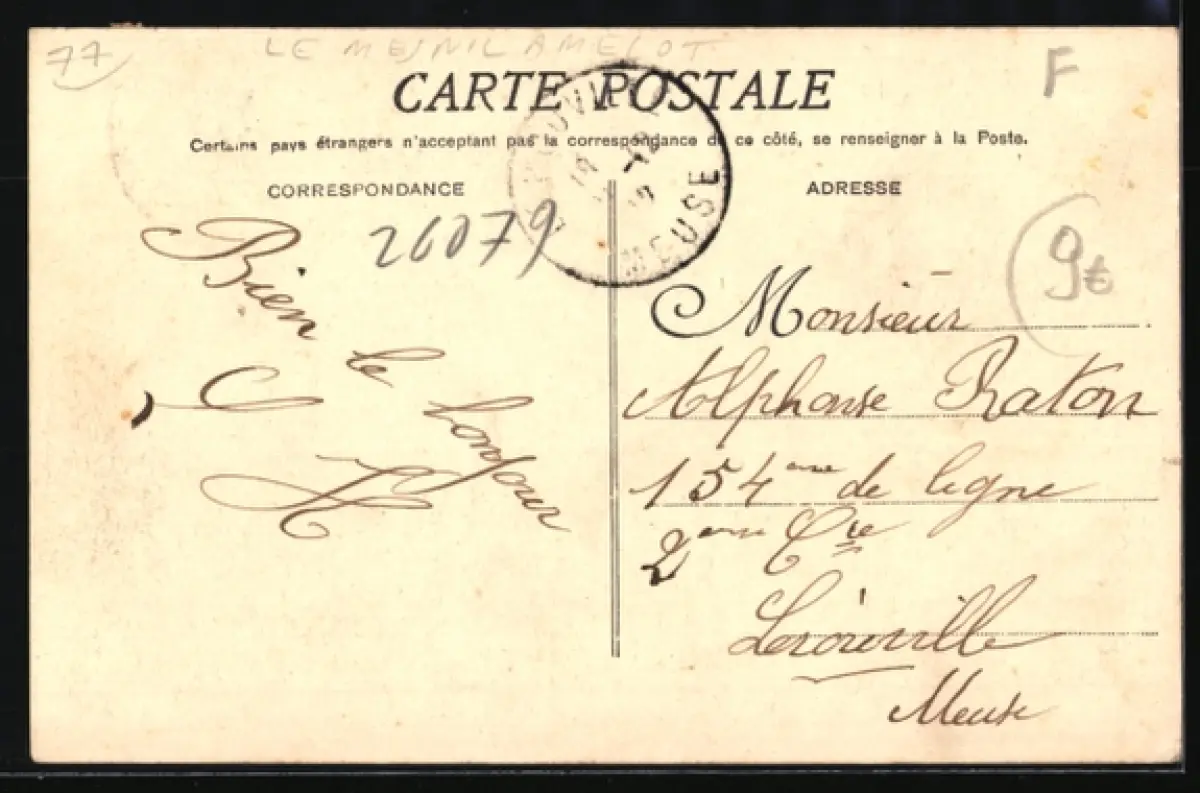 77
LE MESNIL AMELOT
F
CARTE POSTALE
Certains pays étrangers n'acceptent pas la correspondance de ce côté, se renseigner à la Poste.
MEUSE
CORRESPONDANCE
26079
Bien
le
bonjour
ADRESSE
9€
Monsieur
Alphonse Raton
154eme de ligne
2eme Cie
Lerouville
Meuse